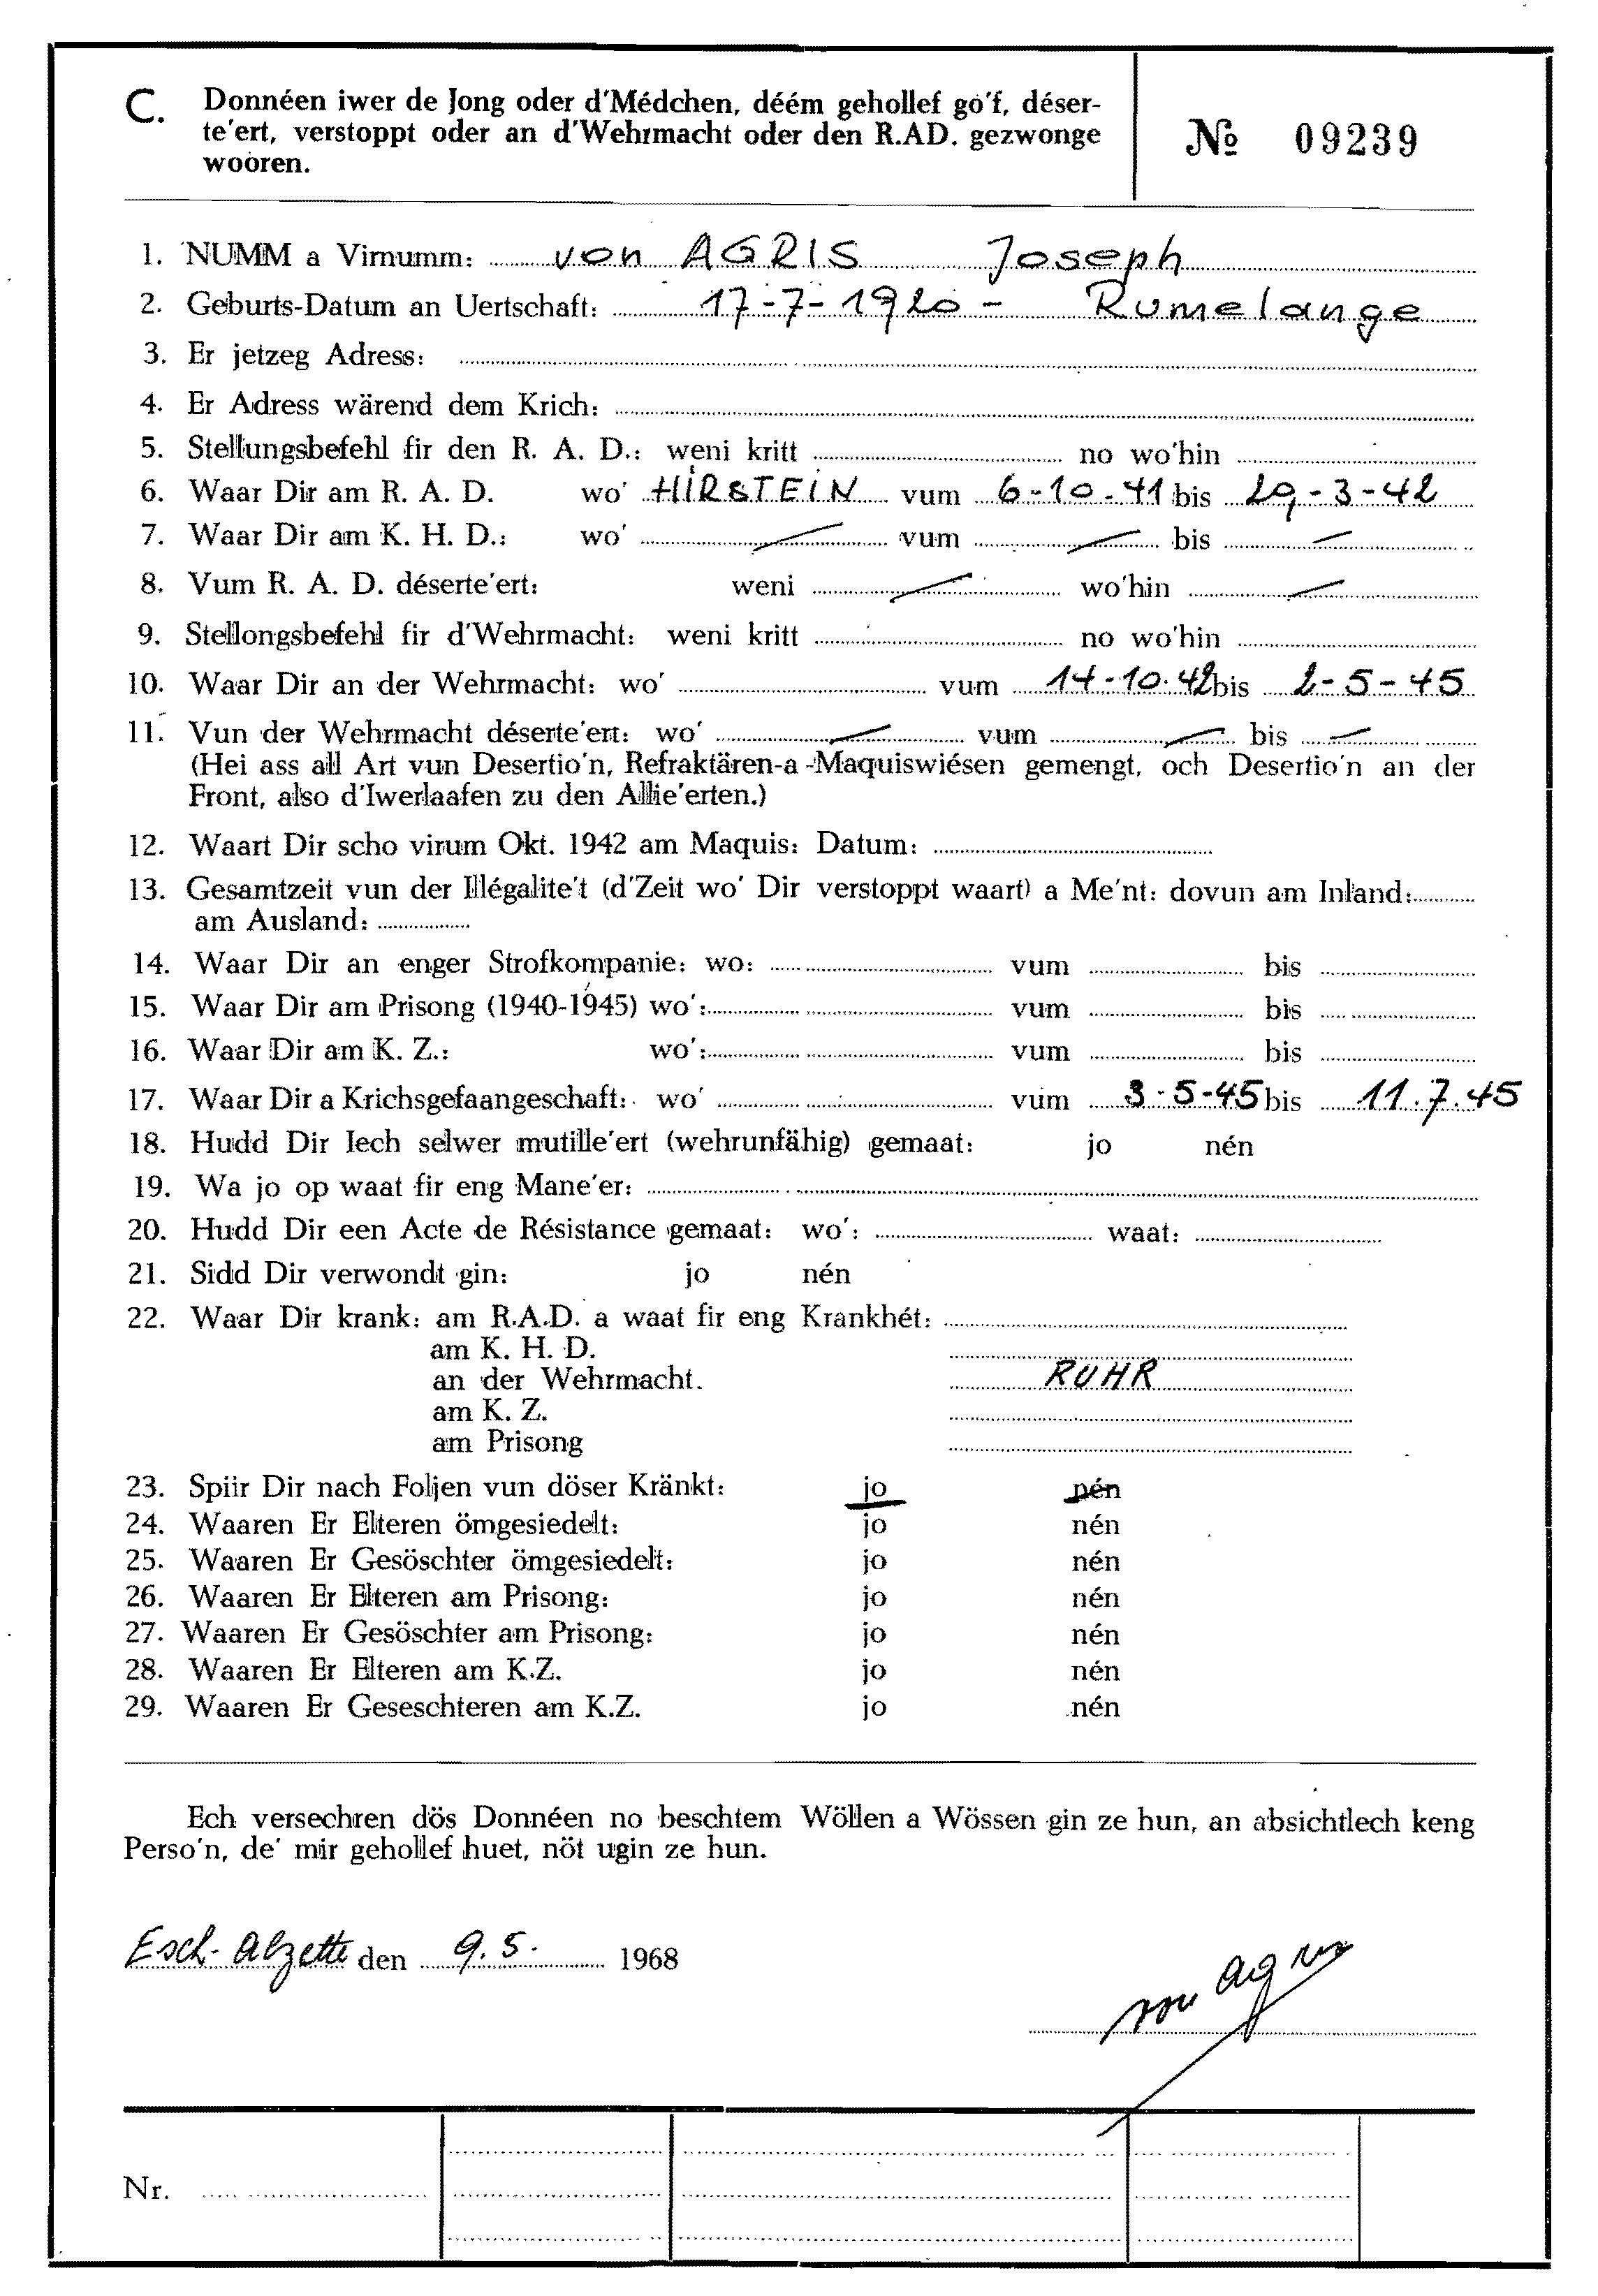 C. Donnéen iwer de Jong oder d'Médchen, déém gehollef go'f, déser-
te'ert, verstoppt oder an d'Wehrmacht oder den R.AD. gezwonge
wooren.
№ 09239
1. NUMM a Virnumm: von AGRIS Joseph
2. Geburts-Datum an Uertschaft: 17-7-1920 - Rumelange
3. Er jetzeg Adress:
4. Er Adress wärend dem Krich:
5. Stellungsbefehl fir den R. A. D.: weni kritt no wo'hin
6. Waar Dir am R. A. D. wo' HIRSTEIN vum 6-10-41 bis 29-3-42
7. Waar Dir am K. H. D.: wo' — vum — bis —
8. Vum R. A. D. déserte'ert: weni — wo'hin —
9. Stellongsbefehl fir d'Wehrmacht: weni kritt no wo'hin
10. Waar Dir an der Wehrmacht: wo' vum 14-10-42 bis 2-5-45
11. Vun der Wehrmacht déserte'ert: wo' — vum — bis —
(Hei ass all Art vun Desertio'n, Refraktären-a-Maquiswiésen gemengt, och Desertio'n an der
Front, also d'Iwerlaafen zu den Allie'erten.)
12. Waart Dir scho virum Okt. 1942 am Maquis: Datum:
13. Gesamtzeit vun der Illégalite't (d'Zeit wo' Dir verstoppt waart) a Me'nt: dovun am Inland:
am Ausland:
14. Waar Dir an enger Strofkompanie: wo: vum bis
15. Waar Dir am Prisong (1940-1945) wo': vum bis
16. Waar Dir am K. Z.: wo': vum bis
17. Waar Dir a Krichsgefaangeschaft: wo' vum 3-5-45 bis 11.7.45
18. Hudd Dir Iech selwer mutille'ert (wehrunfähig) gemaat: jo nén
19. Wa jo op waat fir eng Mane'er:
20. Hudd Dir een Acte de Résistance gemaat: wo': waat:
21. Sidd Dir verwondt gin: jo nén
22. Waar Dir krank: am R.A.D. a waat fir eng Krankhét:
am K. H. D.
an der Wehrmacht. RUHR
am K. Z.
am Prisong
23. Spiir Dir nach Foljen vun döser Kränkt: jo nén
24. Waaren Er Elteren ömgesiedelt: jo nén
25. Waaren Er Gesöschter ömgesiedelt: jo nén
26. Waaren Er Elteren am Prisong: jo nén
27. Waaren Er Gesöschter am Prisong: jo nén
28. Waaren Er Elteren am K.Z. jo nén
29. Waaren Er Geseschteren am K.Z. jo nén
Ech versechren dös Donnéen no beschtem Wöllen a Wössen gin ze hun, an absichtlech keng
Perso'n, de' mir gehollef huet, nöt ugin ze hun.
Esch-Alzette den 9.5. 1968
von Agris
Nr.